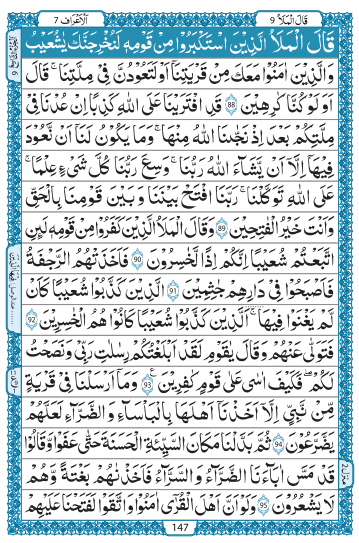 قَالَ الْمَلَاُ ٩
اَلْاَعْرَاف ٧
قَالَ الْمَلَاُ الَّذِيْنَ اسْتَكْبَرُوْا مِنْ قَوْمِهٖ لَنُخْرِجَنَّكَ يٰشُعَيْبُ
وَالَّذِيْنَ اٰمَنُوْا مَعَكَ مِنْ قَرْيَتِنَاۤ اَوْ لَتَعُوْدُنَّ فِيْ مِلَّتِنَا ؕ قَالَ
اَوَلَوْ كُنَّا كٰرِهِيْنَ 88 قَدِ افْتَرَيْنَا عَلَى اللّٰهِ كَذِبًا اِنْ عُدْنَا فِيْ
مِلَّتِكُمْ بَعْدَ اِذْ نَجّٰىنَا اللّٰهُ مِنْهَا ؕ وَمَا يَكُوْنُ لَنَاۤ اَنْ نَّعُوْدَ
فِيْهَاۤ اِلَّاۤ اَنْ يَّشَآءَ اللّٰهُ رَبُّنَا ؕ وَسِعَ رَبُّنَا كُلَّ شَيْءٍ عِلْمًا ؕ
عَلَى اللّٰهِ تَوَكَّلْنَا ؕ رَبَّنَا افْتَحْ بَيْنَنَا وَبَيْنَ قَوْمِنَا بِالْحَقِّ
وَاَنْتَ خَيْرُ الْفٰتِحِيْنَ 89 وَقَالَ الْمَلَاُ الَّذِيْنَ كَفَرُوْا مِنْ قَوْمِهٖ لَىِٕنِ
اتَّبَعْتُمْ شُعَيْبًا اِنَّكُمْ اِذًا لَّخٰسِرُوْنَ 90 فَاَخَذَتْهُمُ الرَّجْفَةُ
فَاَصْبَحُوْا فِيْ دَارِهِمْ جٰثِمِيْنَ 91 الَّذِيْنَ كَذَّبُوْا شُعَيْبًا كَاَنْ
لَّمْ يَغْنَوْا فِيْهَا ۛ اَلَّذِيْنَ كَذَّبُوْا شُعَيْبًا كَانُوْا هُمُ الْخٰسِرِيْنَ 92
فَتَوَلّٰى عَنْهُمْ وَقَالَ يٰقَوْمِ لَقَدْ اَبْلَغْتُكُمْ رِسٰلٰتِ رَبِّيْ وَنَصَحْتُ
لَكُمْ ۚ فَكَيْفَ اٰسٰى عَلٰى قَوْمٍ كٰفِرِيْنَ 93 وَمَاۤ اَرْسَلْنَا فِيْ قَرْيَةٍ
مِّنْ نَّبِيٍّ اِلَّاۤ اَخَذْنَاۤ اَهْلَهَا بِالْبَاْسَآءِ وَالضَّرَّآءِ لَعَلَّهُمْ
يَضَّرَّعُوْنَ 94 ثُمَّ بَدَّلْنَا مَكَانَ السَّيِّئَةِ الْحَسَنَةَ حَتّٰى عَفَوْا وَّقَالُوْا
قَدْ مَسَّ اٰبَآءَنَا الضَّرَّآءُ وَالسَّرَّآءُ فَاَخَذْنٰهُمْ بَغْتَةً وَّهُمْ
لَا يَشْعُرُوْنَ 95 وَلَوْ اَنَّ اَهْلَ الْقُرٰۤى اٰمَنُوْا وَاتَّقَوْا لَفَتَحْنَا عَلَيْهِمْ
147